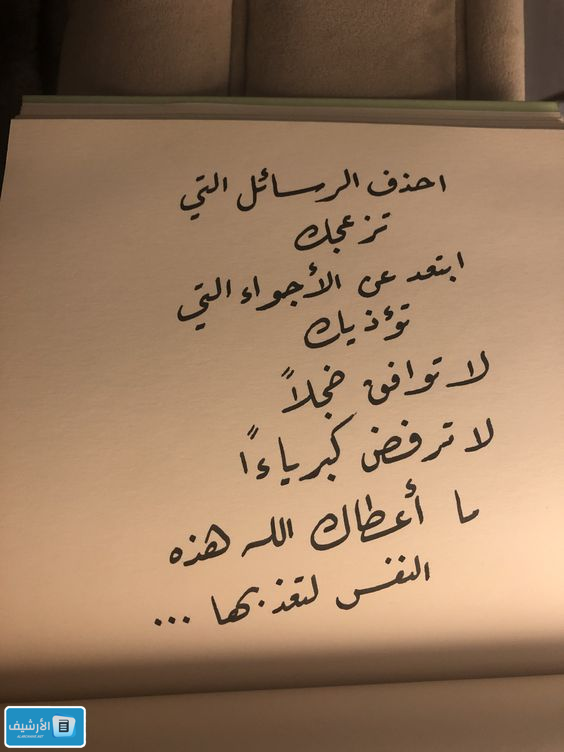 احذف الرسائل التي
تزعجك
ابتعد عن الأجواء التي
تؤذيك
لا توافق خجلاً
لا ترفض كبرياءاً
ما أعطاك الله هذه
النفس لتعذبها ...
الأرشيف